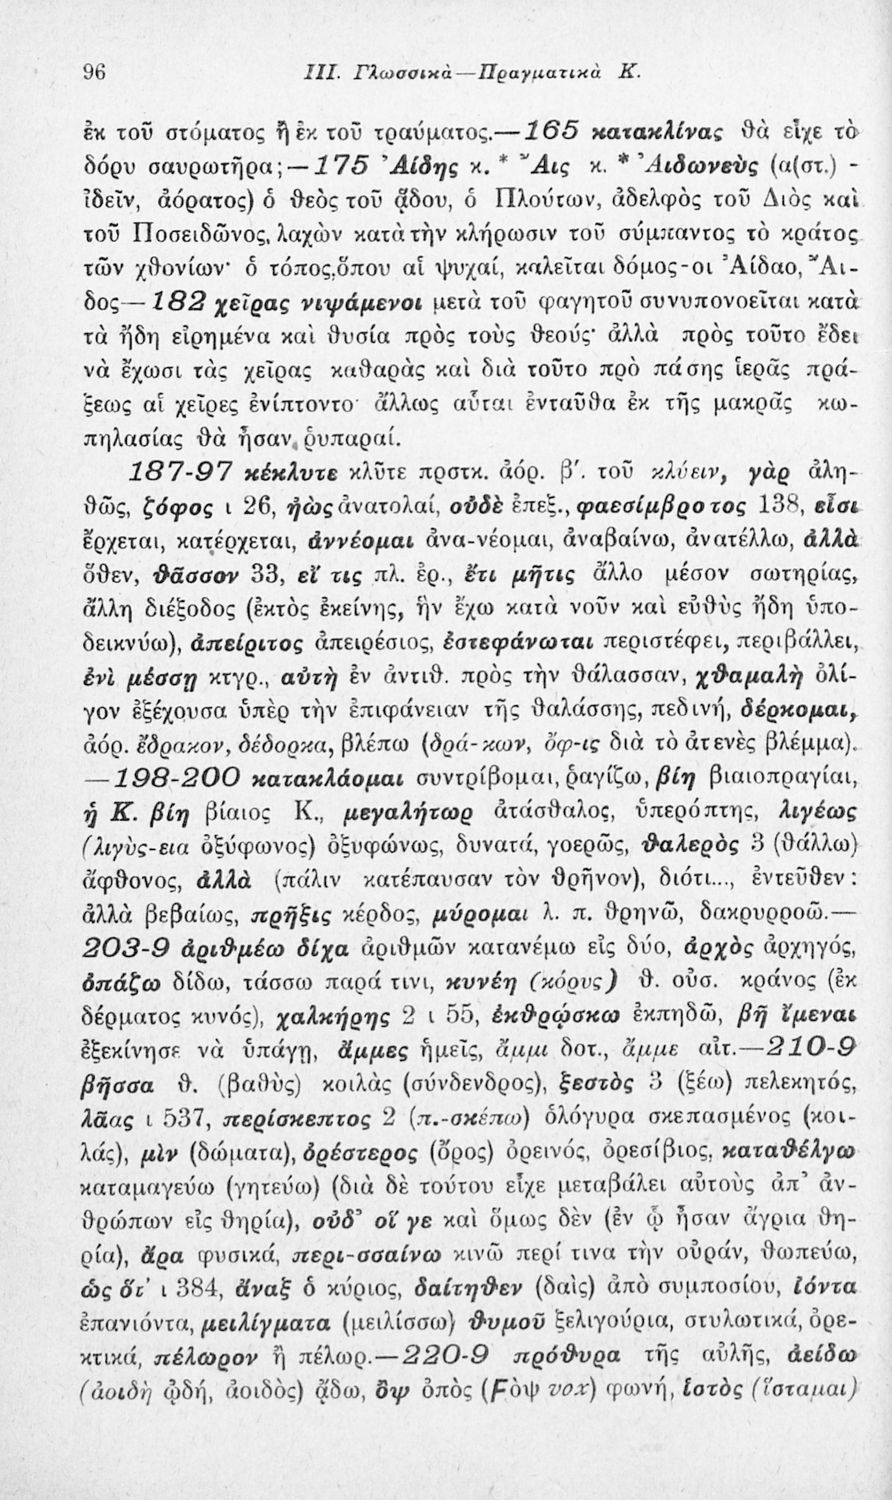 96 III. Γλωσσικὰ—Πραγματικὰ Κ.
ἐκ τοῦ στόματος ἢ ἐκ τοῦ τραύματος.—165 κατακλίνας θὰ εἶχε τὸ
δόρυ σαυρωτῆρα;—175 Ἀΐδης κ. * Ἄϊς κ. * Ἀιδωνεὺς (α(στ.) -
ἰδεῖν, ἀόρατος) ὁ θεὸς τοῦ ᾅδου, ὁ Πλούτων, ἀδελφὸς τοῦ Διὸς καὶ
τοῦ Ποσειδῶνος, λαχὼν κατὰ τὴν κλήρωσιν τοῦ σύμπαντος τὸ κράτος
τῶν χθονίων· ὁ τόπος, ὅπου αἱ ψυχαί, καλεῖται δόμος-οι Ἀίδαο, Ἄι-
δος—182 χεῖρας νιψάμενοι μετὰ τοῦ φαγητοῦ συνυπονοεῖται κατὰ
τὰ ἤδη εἰρημένα καὶ θυσία πρὸς τοὺς θεούς· ἀλλὰ πρὸς τοῦτο ἔδει
νὰ ἔχωσι τὰς χεῖρας καθαρὰς καὶ διὰ τοῦτο πρὸ πάσης ἱερᾶς πρά-
ξεως αἱ χεῖρες ἐνίπτοντο· ἄλλως αὗται ἐνταῦθα ἐκ τῆς μακρᾶς κω-
πηλασίας θὰ ἦσαν ῥυπαραί.
187-97 κέκλυτε κλῦτε πρστκ. ἀόρ. β΄. τοῦ κλύειν, γὰρ ἀλη-
θῶς, ζόφος ι 26, ἠὼς ἀνατολαί, οὐδὲ ἐπεξ., φαεσίμβροτος 138, εἶσι
ἔρχεται, κατέρχεται, ἀννέομαι ἀνα-νέομαι, ἀναβαίνω, ἀνατέλλω, ἀλλὰ
ὅθεν, θᾶσσον 33, εἴ τις πλ. ἐρ., ἔτι μῆτις ἄλλο μέσον σωτηρίας,
ἄλλη διέξοδος (ἐκτὸς ἐκείνης, ἣν ἔχω κατὰ νοῦν καὶ εὐθὺς ἤδη ὑπο-
δεικνύω), ἀπείριτος ἀπειρέσιος, ἐστεφάνωται περιστέφει, περιβάλλει,
ἐνὶ μέσσῃ κτγρ., αὐτὴ ἐν ἀντιθ. πρὸς τὴν θάλασσαν, χθαμαλὴ ὀλί-
γον ἐξέχουσα ὑπὲρ τὴν ἐπιφάνειαν τῆς θαλάσσης, πεδινή, δέρκομαι,
ἀόρ. ἔδρακον, δέδορκα, βλέπω (δρά-κων, ὄφ-ις διὰ τὸ ἀτενὲς βλέμμα).
—198-200 κατακλάομαι συντρίβομαι, ῥαγίζω, βίη βιαιοπραγίαι,
ἡ Κ. βίη βίαιος Κ., μεγαλήτωρ ἀτάσθαλος, ὑπερόπτης, λιγέως
(λιγὺς-εια ὀξύφωνος) ὀξυφώνως, δυνατά, γοερῶς, θαλερὸς 3 (θάλλω)
ἄφθονος, ἀλλὰ (πάλιν κατέπαυσαν τὸν θρῆνον), διότι..., ἐντεῦθεν:
ἀλλὰ βεβαίως, πρῆξις κέρδος, μύρομαι λ. π. θρηνῶ, δακρυρροῶ.—
203-9 ἀριθμέω δίχα ἀριθμῶν κατανέμω εἰς δύο, ἀρχὸς ἀρχηγός,
ὀπάζω δίδω, τάσσω παρά τινι, κυνέη (κόρυς) θ. οὐσ. κράνος (ἐκ
δέρματος κυνός), χαλκήρης 2 ι 55, ἐκθρῴσκω ἐκπηδῶ, βῆ ἴμεναι
ἐξεκίνησε νὰ ὑπάγῃ, ἄμμες ἡμεῖς, ἄμμι δοτ., ἄμμε αἰτ.—210-9
βῆσσα θ. (βαθὺς) κοιλὰς (σύνδενδρος), ξεστὸς 3 (ξέω) πελεκητός,
λᾶας ι 537, περίσκεπτος 2 (π.-σκέπω) ὁλόγυρα σκεπασμένος (κοι-
λάς), μὶν (δώματα), ὀρέστερος (ὄρος) ὀρεινός, ὀρεσίβιος, καταθέλγω
καταμαγεύω (γητεύω) (διὰ δὲ τούτου εἶχε μεταβάλει αὐτοὺς ἀπ᾽ ἀν-
θρώπων εἰς θηρία), οὐδ᾽ οἵ γε καὶ ὅμως δὲν (ἐν ᾧ ἦσαν ἄγρια θη-
ρία), ἄρα φυσικά, περι-σσαίνω κινῶ περί τινα τὴν οὐράν, θωπεύω,
ὡς ὅτ᾽ ι 384, ἄναξ ὁ κύριος, δαίτηθεν (δαὶς) ἀπὸ συμποσίου, ἰόντα
ἐπανιόντα, μειλίγματα (μειλίσσω) θυμοῦ ξελιγούρια, στυλωτικά, ὀρε-
κτικά, πέλωρον ἢ πέλωρ.—220-9 πρόθυρα τῆς αὐλῆς, ἀείδω
(ἀοιδὴ ᾠδή, ἀοιδὸς) ᾄδω, ὂψ ὀπὸς (Ϝὸψ vox) φωνή, ἱστὸς (ἵσταμαι)